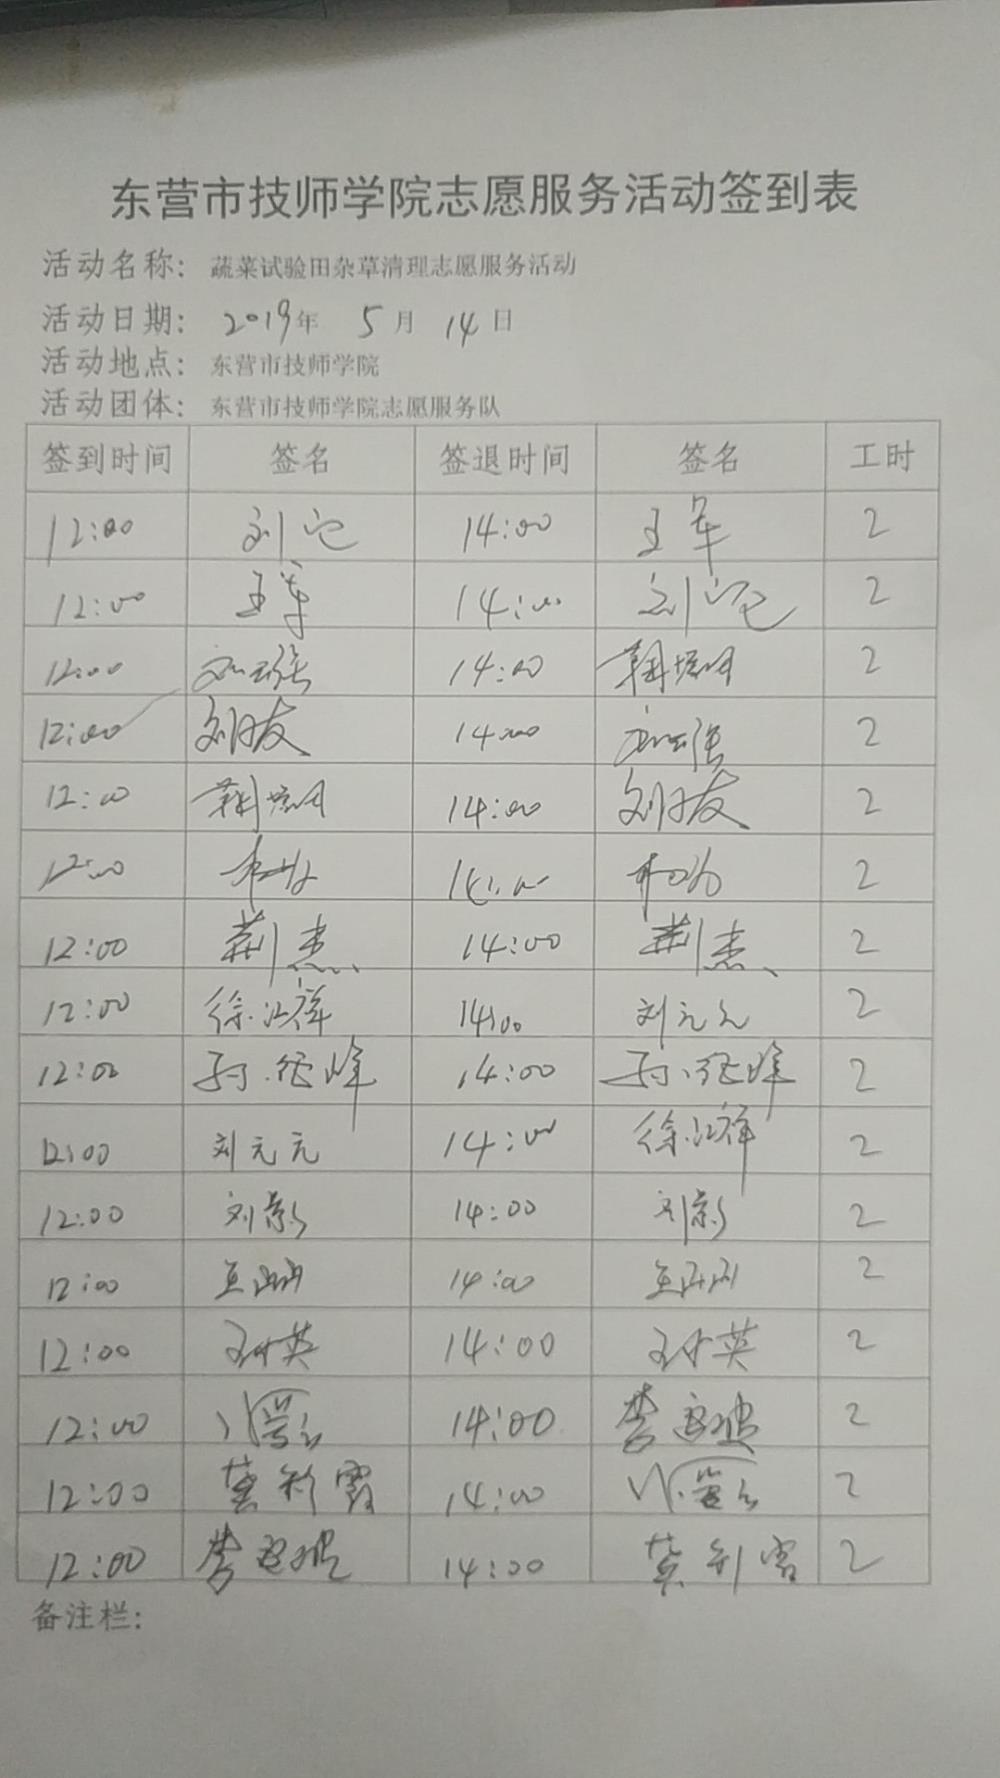 东营市技师学院志愿服务活动签到表
活动名称：蔬菜试验田杂草清理志愿服务活动
活动日期：2019年 5月 14日
活动地点：东营市技师学院
活动团体：东营市技师学院志愿服务队
签到时间 签名 签退时间 签名 工时
12:00 刘 14:00 王军 2
12:00 王军 14:00 刘 2
12:00 14:00 2
12:00 刘友 14:00 2
12:00 14:00 刘友 2
12:00 14:00 2
12:00 荆杰 14:00 荆杰 2
12:00 徐江祥 14:00 刘元元 2
12:00 孙继峰 14:00 孙继峰 2
12:00 刘元元 14:00 徐江祥 2
12:00 刘影 14:00 刘影 2
12:00 14:00 2
12:00 英 14:00 英 2
12:00 14:00 李 2
12:00 彩霞 14:00 2
12:00 李 14:00 2
备注栏：